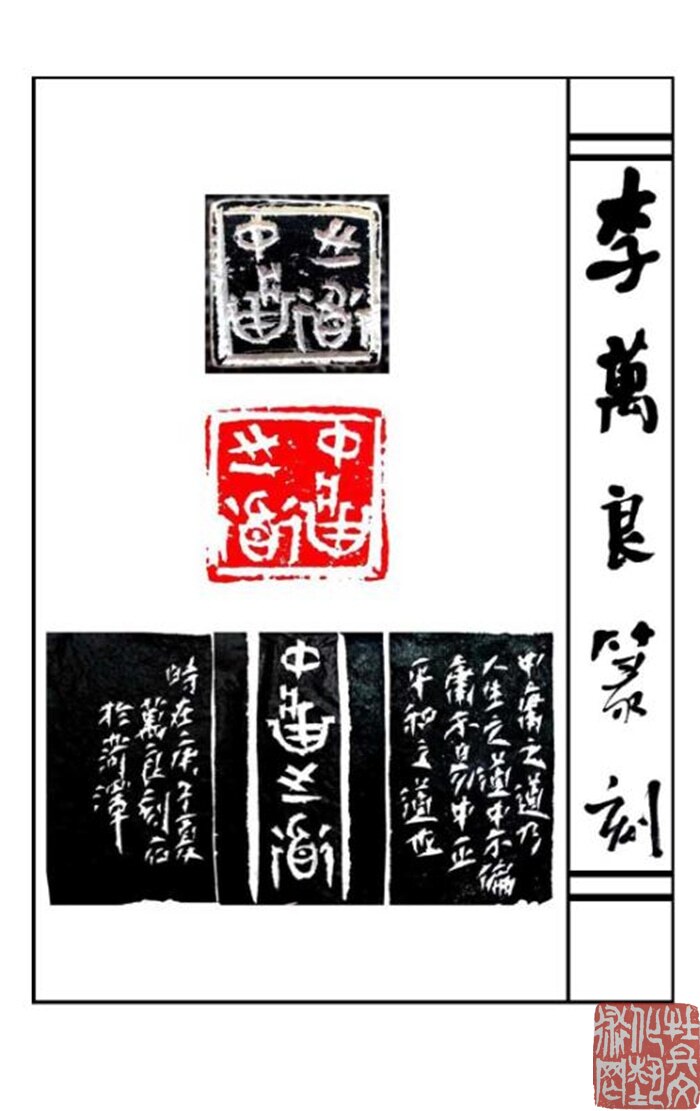 李萬良篆刻
中庸
之道
中庸
之道
中庸之道乃
人生之道中不偏
庸不易中正
平和之道也
中庸之道
時在庚子夏
萬良刻石
於菏澤